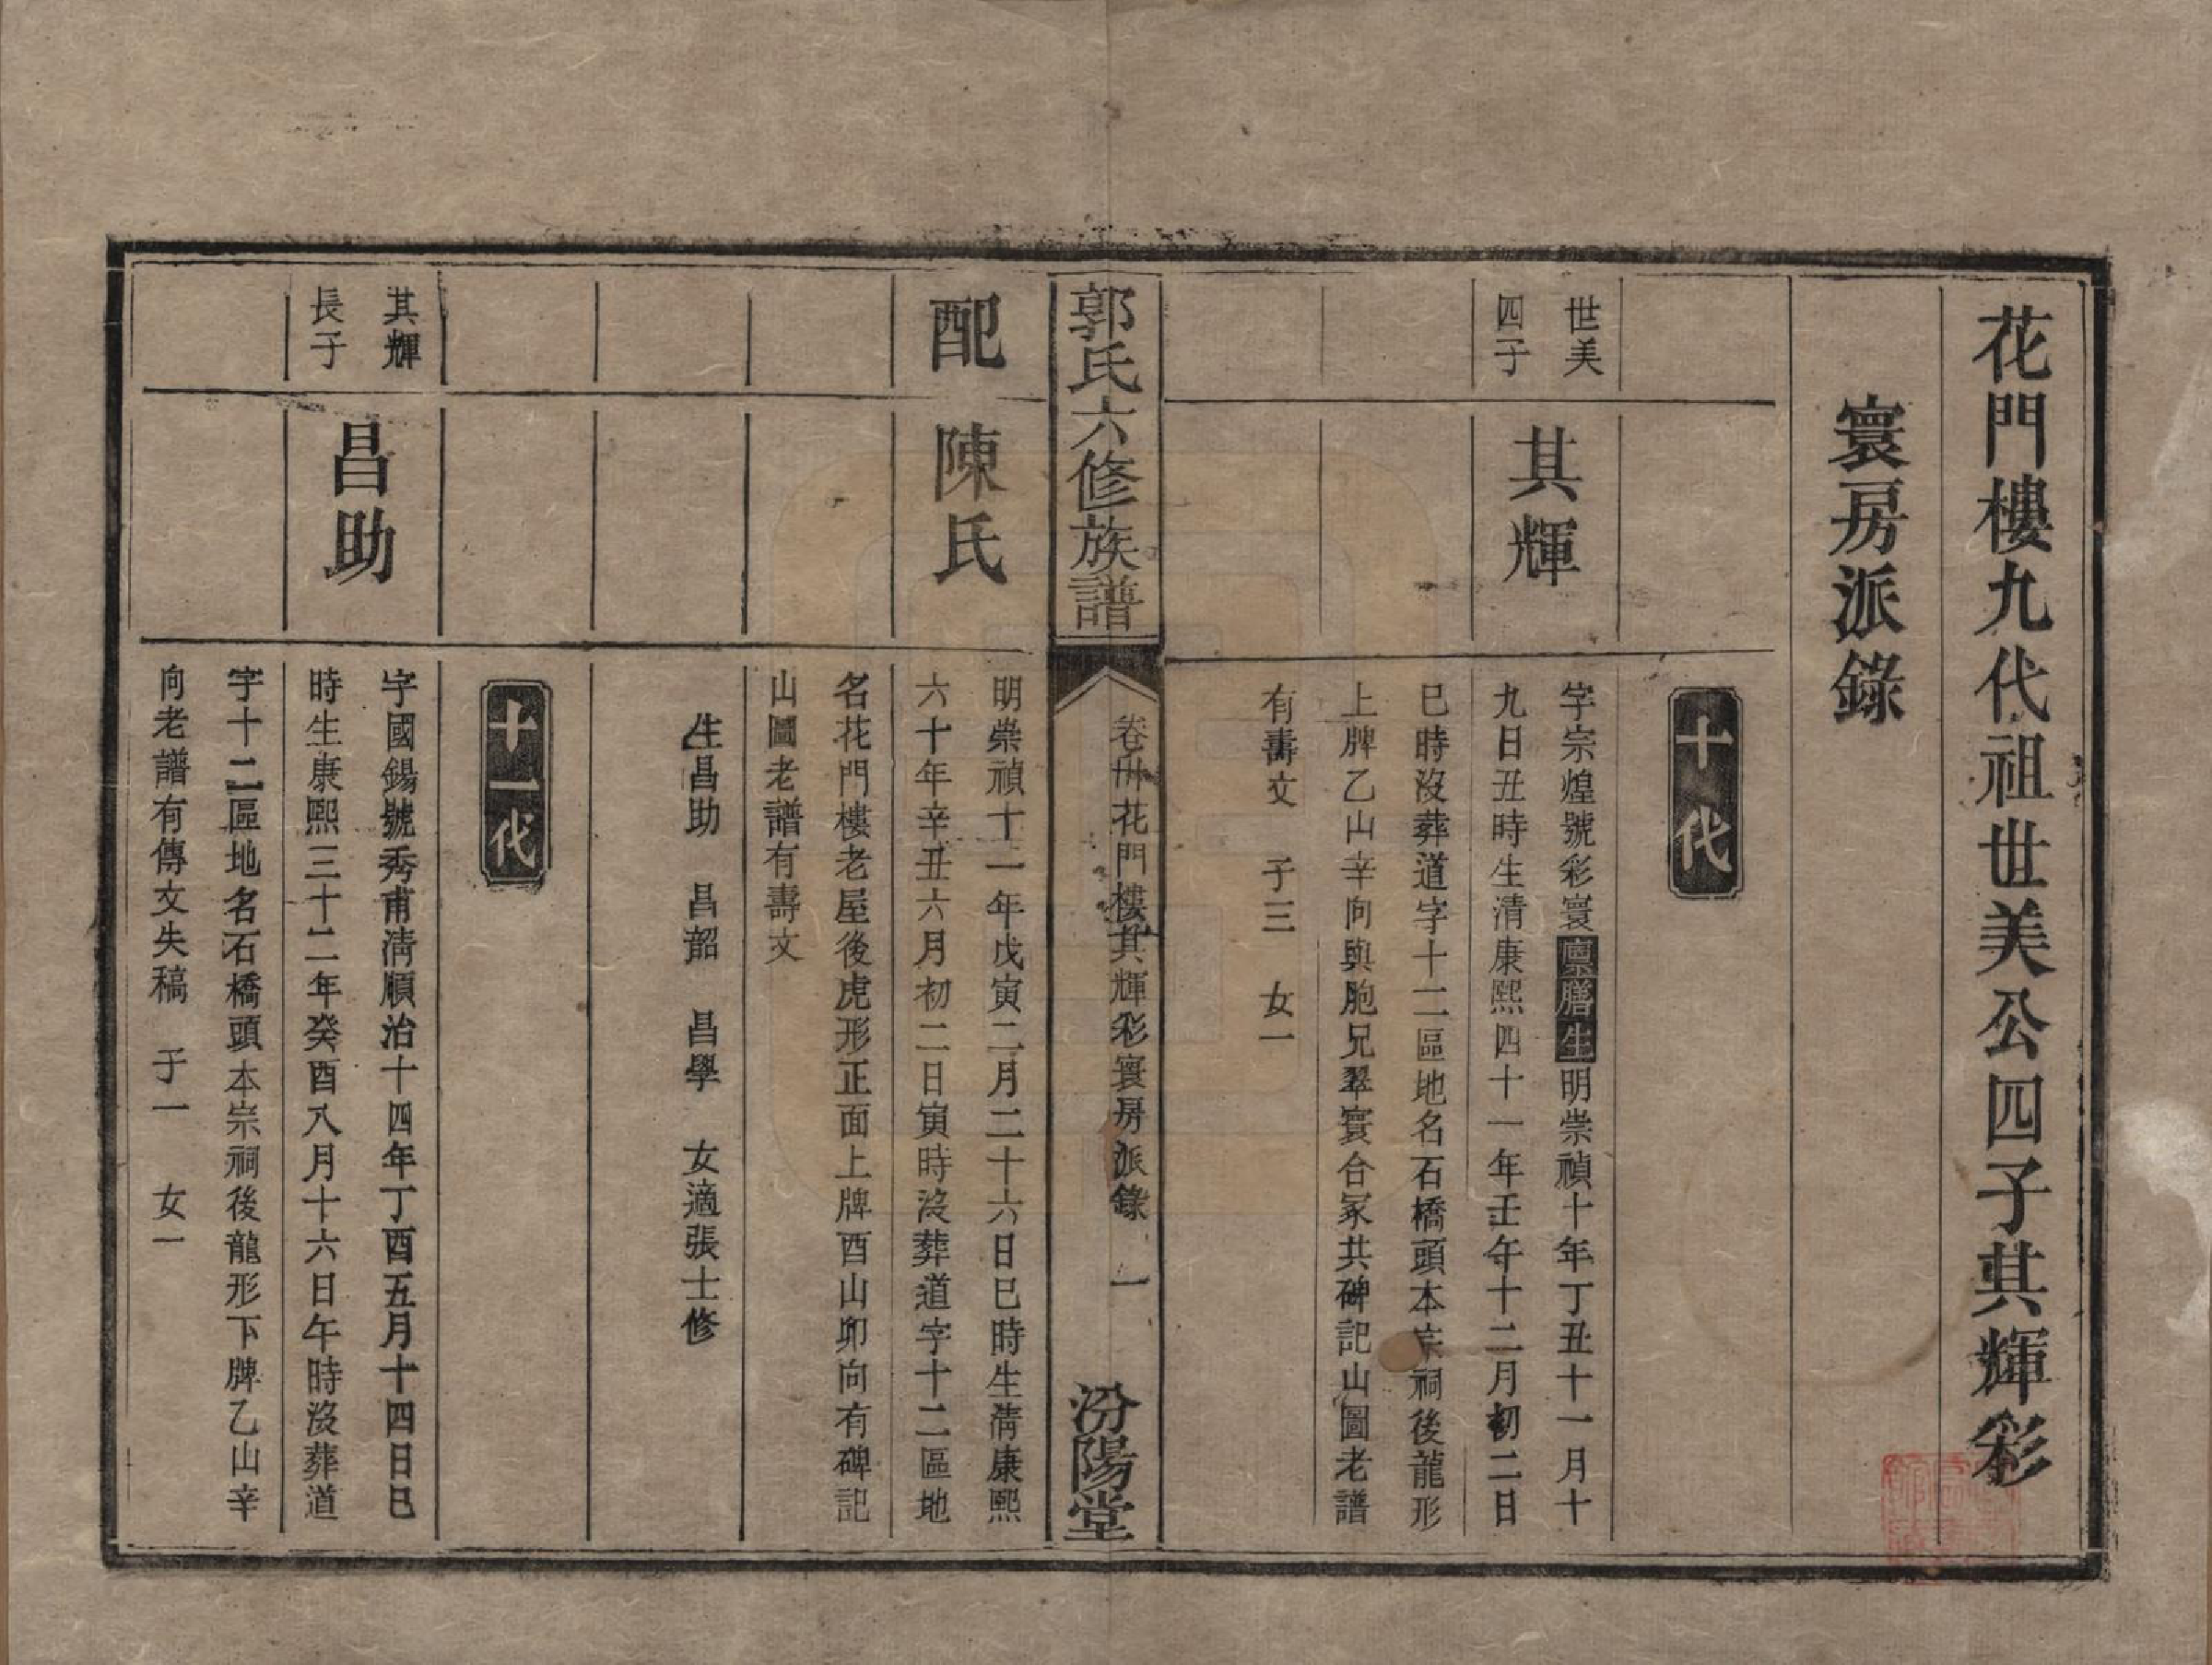 花門樓九代祖世美公四子其輝彩
寰房派錄
十代
世美
四子
其輝
字宗煌號彩寰廩膳生明崇禎十年丁丑十一月十
九日丑時生清康熙四十一年壬午十二月初二日
巳時沒葬道字十二區地名石橋頭本宗祠後龍形
上牌乙山辛向與胞兄翠寰合冢共碑記山圖老譜
有壽文　子三　女一
郭氏六修族譜
卷卅花門樓其輝彩寰房派錄　一
汾陽堂
配
陳氏
明崇禎十一年戊寅二月二十六日巳時生清康熙
六十年辛丑六月初二日寅時沒葬道字十二區地
名花門樓老屋後虎形正面上牌酉山卯向有碑記
山圖老譜有壽文
生昌助　昌韶　昌學　女適張士修
十一代
其輝
長子
昌助
字國錫號秀甫清順治十四年丁酉五月十四日巳
時生康熙三十二年癸酉八月十六日午時沒葬道
字十二區地名石橋頭本宗祠後龍形下牌乙山辛
向老譜有傳文失稿　子一　女一